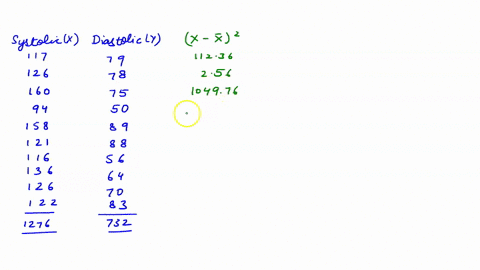 Systolic(X) Diastolic(Y) (X - X̄)²
117 79 112.36
126 78 2.56
160 75 1049.76
94 50
158 89
121 88
116 56
136 64
126 70
122 83
1276 732